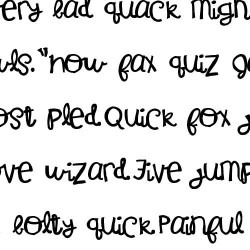 ery lad quack migh
wls."now fax quiz g
ost pled.Quick fox j
ove wizard.Five jump
bolty quick.Painful